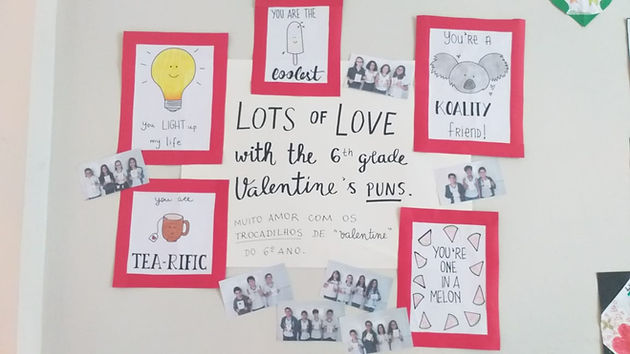 YOU ARE THE
coolest
You're A
KOALITY
friend!
you LIGHT up
my life
LOTS OF LOVE
with the 6th grade
Valentine's PUNS.
MUITO AMOR COM OS
TROCADILHOS DE "Valentine"
DO 6º ANO.
you are
TEA-RIFIC
YOU'RE
ONE
IN A
MELON